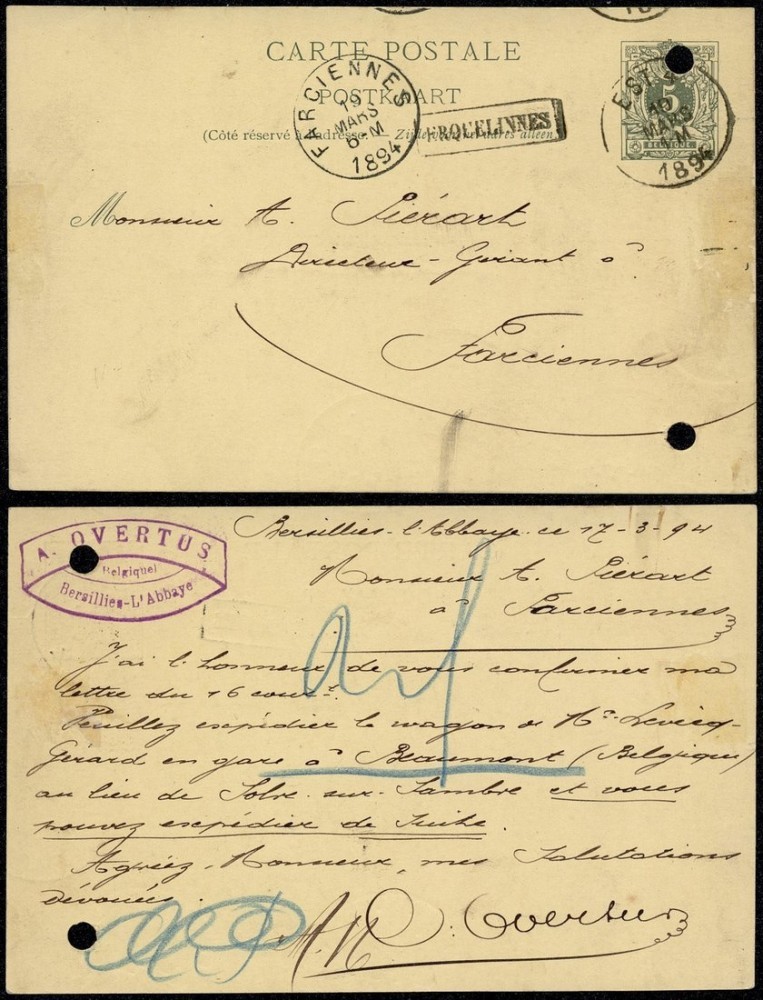 CARTE POSTALE
POSTKAART
(Côté réservé à l'adresse. — Zijde alleen)
FARCIENNES
19
MARS
6-M
1894
ERQUELINNES
EST 4
19
MARS
1-M
1894
5
BELGIQUE
Monsieur A. Piérart
Directeur-Gérant à
Farciennes
A. OVERTUS
(Belgique)
Bersillies-L'Abbaye
Bersillies-l'Abbaye ce 17-3-94
Monsieur A. Piérart
à Farciennes
J'ai l'honneur de vous confirmer ma
lettre du 16 cour.t
Veuillez expédier le wagon de Mr. Levecq-
Gérard en gare à Beaumont (Belgique)
au lieu de Solre-sur-Sambre et vous
pouvez expédier de suite.
Agréez, Monsieur, mes Salutations
dévouées.
Overtus